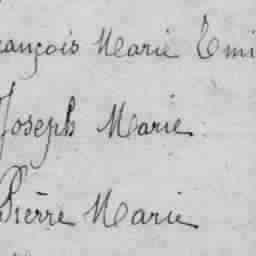 rançois Marie Emi
Joseph Marie
Pièrre Marie